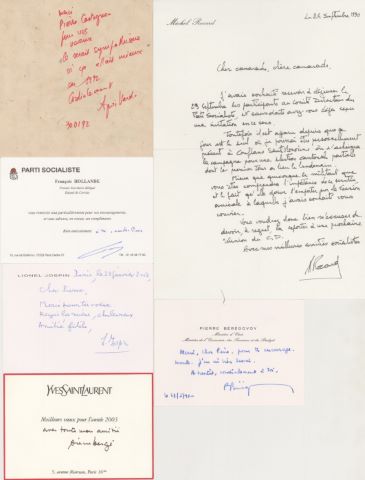 merci
Pierre Castagnou
pour vos
voeux
en 1992
Cordialement
30 01 92
Michel Rocard
Le 25 septembre 1990
Cher camarade, chère camarade,
J'avais souhaité recevoir à déjeuner le
29 septembre les participants au comité Directeur du
Parti Socialiste, et sans doute avez-vous déjà reçu
une invitation en ce sens.
Toutefois il est apparu depuis que ce
jour est le seul où je pourrai être personnellement
présent à Conflans Sainte Honorine, où s'achève
la campagne pour une élection cantonale partielle
dont le premier tour a lieu le lendemain.
Mieux que quiconque le militant que
vous êtes comprendra l'importance de ce vote
et le fait qu'il doive l'emporter sur la réunion
amicale à laquelle j'avais souhaité vous
convier.
Vous voudrez donc bien m'excuser de
devoir, à regret, la reporter à une prochaine
réunion du C.D.
Avec mes meilleures amitiés socialistes
M Rocard
PARTI SOCIALISTE
François HOLLANDE
Premier Secrétaire délégué
Député de Corrèze
vous remercie tout particulièrement pour vos encouragements,
et vous adresse, en retour, ses compliments
Bien amicalement
LIONEL JOSPIN
Paris, le 28 janvier 2003
Cher Pierre,
Merci pour tes voeux
Reçois les miens, chaleureux
Amitié fidèle,
L. Jospin
PIERRE BÉRÉGOVOY
Ministre d'État
Ministre de l'Économie, des Finances et du Budget
Merci, cher Pierre, pour tes encourage-
ments. J'y ai été très sensible.
cordialement à toi.
YVES SAINT LAURENT
Meilleurs voeux pour l'année 2003
avec toute mon amitié
Pierre Bergé
5, avenue Marceau, Paris 16ème